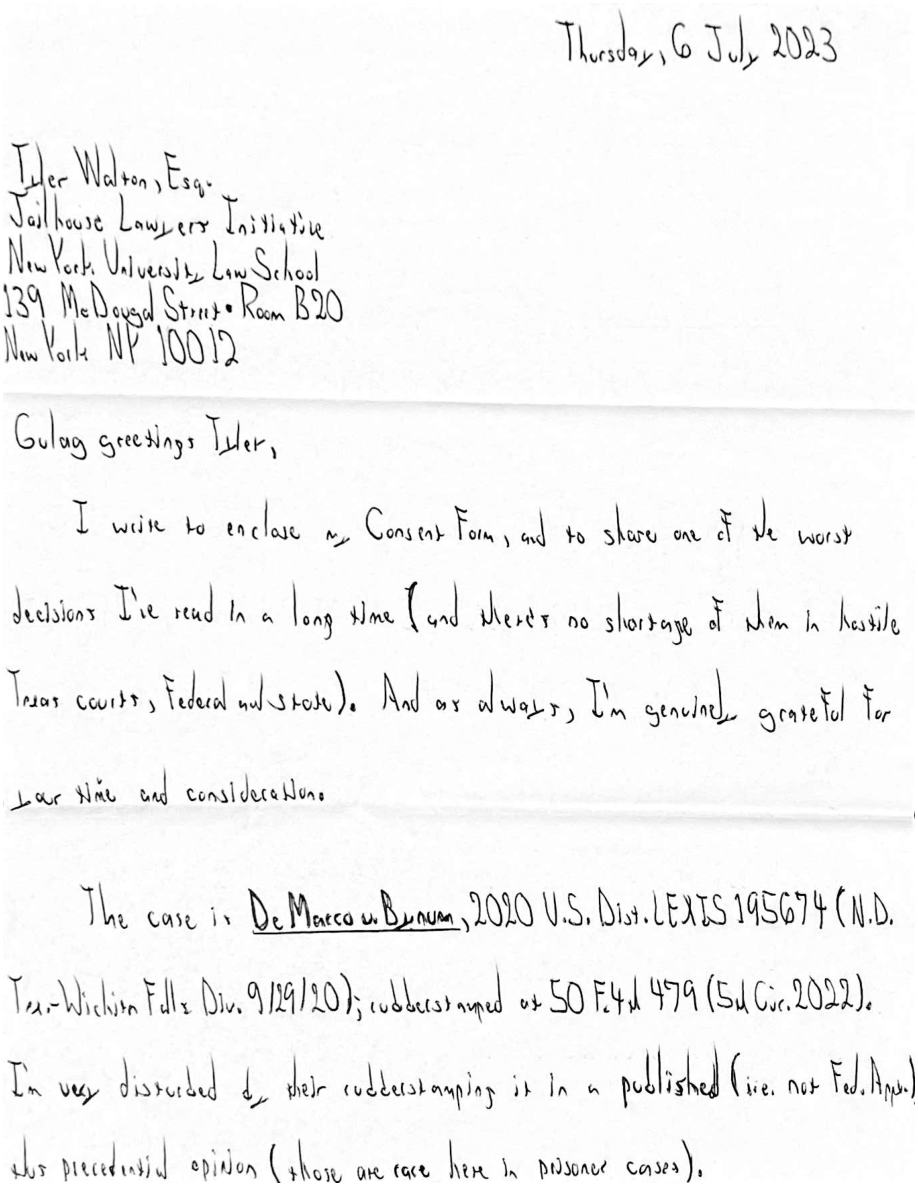 Thursday, 6 July 2023
Tyler Walton, Esq.
Jailhouse Lawyers Initiative
New York University Law School
139 McDougal Street • Room B20
New York NY 10012
Gulag greetings Tyler,
I write to enclose my Consent Form, and to share one of the worst
decisions I've read in a long time (and there's no shortage of them in hostile
Texas courts, Federal and state). And as always, I'm genuinely grateful for
your time and consideration.
The case is DeMarco v. Bynum, 2020 U.S. Dist. LEXIS 195674 (N.D.
Tex.-Wichita Falls Div. 9/29/20); rubberstamped at 50 F.4th 479 (5th Cir. 2022).
I'm very disturbed by their rubberstamping it in a published (i.e. not Fed. Appx.)
thus precedential opinion (those are rare here in prisoner cases).